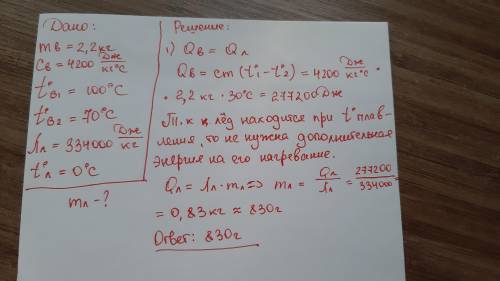 Дано:
mв = 2,2 кг
Cв = 4200 Дж/кг°C
t°в1 = 100°C
t°в2 = 70°C
λл = 334000 Дж/кг
t°л = 0°C
mл - ?
Решение:
1) Qв = Qл
Qв = cm (t°1 - t°2) = 4200 Дж/кг°C ·
· 2,2 кг · 30°C = 277200 Дж
Т.к к лёд находится при t° плав-
ления, то не нужна дополнительная
энергия на его нагревание.
Qл = λл · mл => mл = Qл/λл = 277200/334000 =
= 0,83 кг ≈ 830 г
Ответ: 830 г